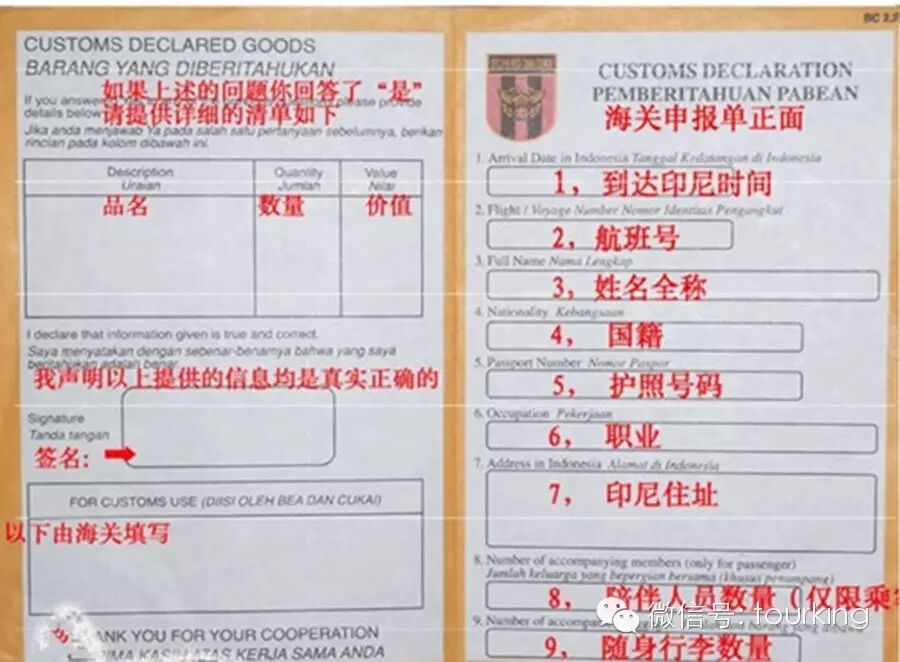 CUSTOMS DECLARED GOODS
BARANG YANG DIBERITAHUKAN
如果上述的问题你回答了“是”
If you answe
请提供详细的清单如下
details below
Jika anda menjawab Ya pada salah satu pertanyaan sebelumnya, berikan
rincian pada kolom dibawah ini.
Description Quantity Value
Uraian Jumlah Nilai
品名 数量 价值
I declare that information given is true and correct.
Saya menyatakan dengan sebenar-benarnya bahwa yang saya
beritahukan adalah benar.
我声明以上提供的信息均是真实正确的
Signature
Tanda tangan
签名:
FOR CUSTOMS USE (DIISI OLEH BEA DAN CUKAI)
以下由海关填写
ANK YOU FOR YOUR COOPERATION
RIMA KASIH ATAS KERJA SAMA ANDA
BC 2.2
CUSTOMS DECLARATION
PEMBERITAHUAN PABEAN
海关申报单正面
1. Arrival Date in Indonesia Tanggal Kedatangan di Indonesia
1, 到达印尼时间
2. Flight / Voyage Number Nomor Identitas Pengangkut
2, 航班号
3. Full Name Nama Lengkap
3, 姓名全称
4. Nationality Kebangsaan
4, 国籍
5. Passport Number Nomor Paspor
5, 护照号码
6. Occupation Pekerjaan
6, 职业
7. Address in Indonesia Alamat di Indonesia
7, 印尼住址
8. Number of accompanying members (only for passenger)
Jumlah keluarga yang bepergian bersama (khusus penumpang)
8, 陪伴人员数量(仅限乘
微信号: tourking
9. Number of accompa
9, 随身行李数量